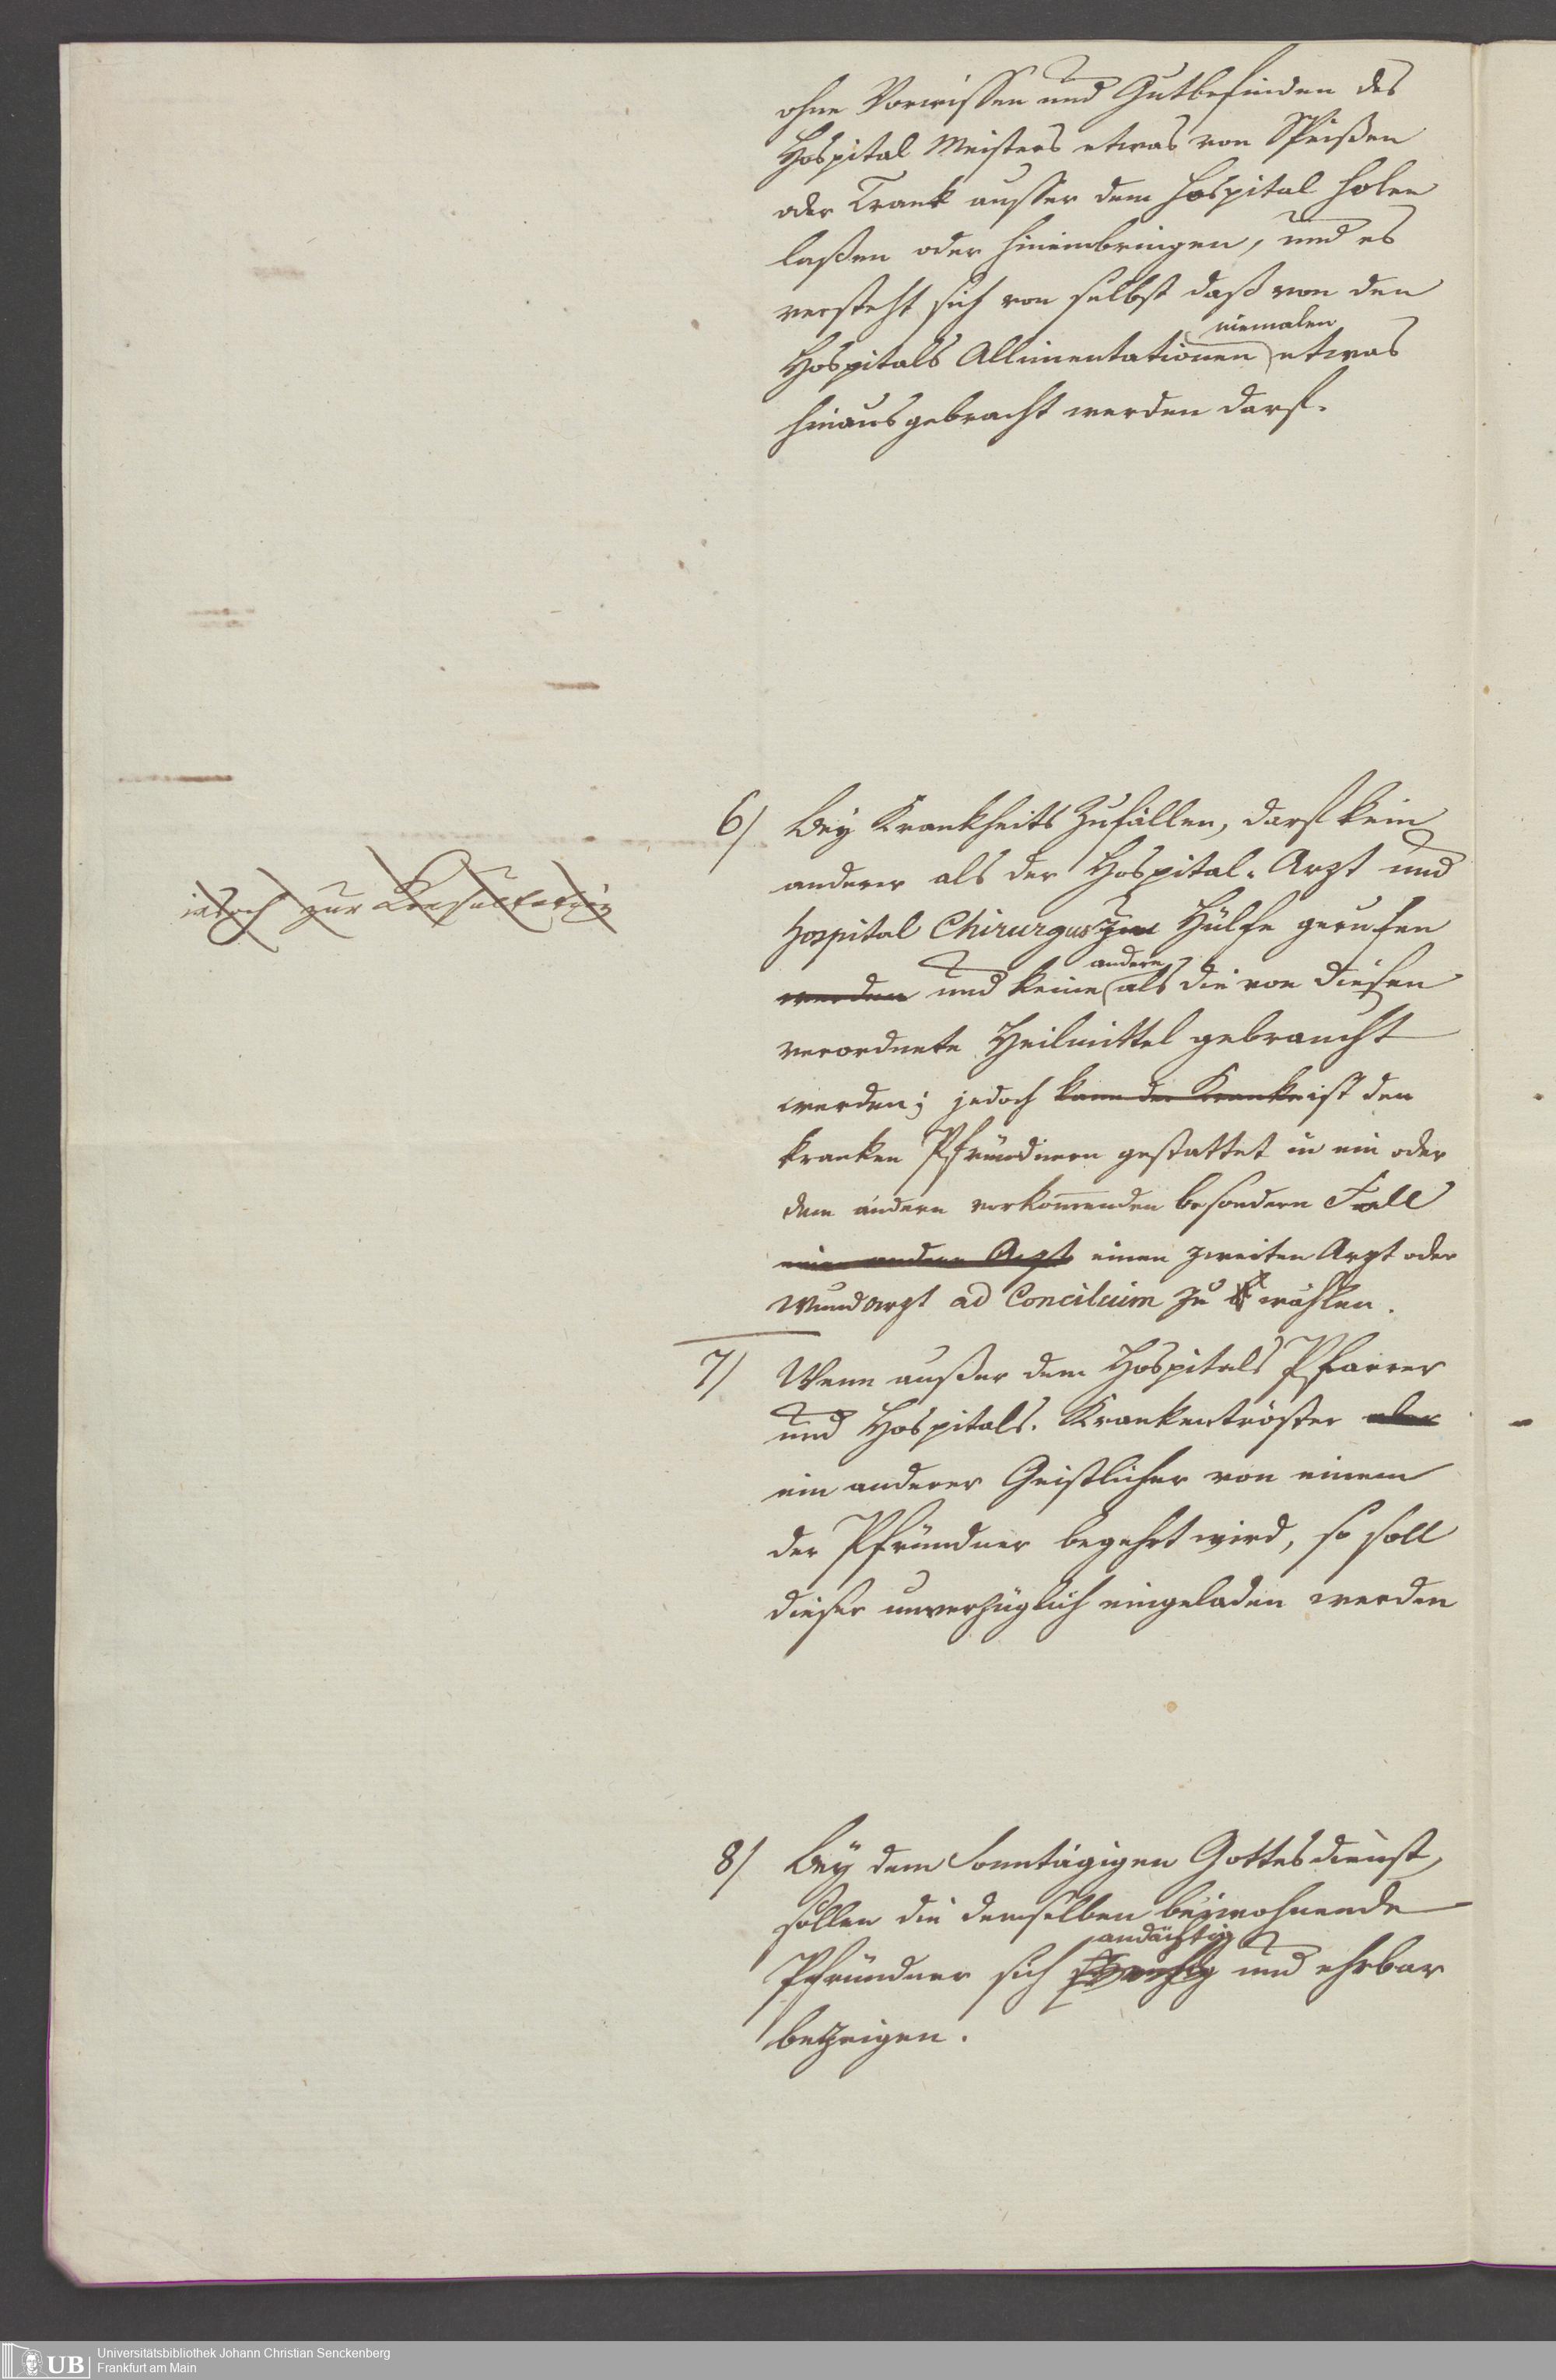 ohne Vorwissen und Gutbefinden des
Hospital Meisters etwas von Speißen
oder Trank ausser dem Hospital holen
laßen oder hineinbringen, und es
versteht sich von selbst daß von den
niemalen
Hospitals Allimentationen etwas
hinausgebracht werden darf.
6) Bey Krankheits Zufällen, darf kein
anderer als der Hospital-Arzt und
jedoch zur
Hospital Chirurgus zur Hülfe gerufen
andere
werden und keine als die von diesen
verordnete Heilmittel gebraucht
werden; jedoch kann der Kranke ist den
kranken Pfründnern gestattet in ein oder
dem andern vorkom̅enden besondern Fall
einen andern Arzt einen zweiten Arzt oder
Wundarzt ad Concilium zu wählen.
7) Wenn außer dem Hospitals Pfarrer
und Hospitals-Krankentröster aber
ein anderer Geistlicher von einem
der Pfründner begehrt wird, so soll
dieser unverzüglich eingeladen werden
8) Bey dem Sonntägigen Gottesdienst,
sollen die demselben beywohnende
andächtig
Pfründner sich und ehrbar
bezeigen.
UB Universitätsbibliothek Johann Christian Senckenberg
Frankfurt am Main